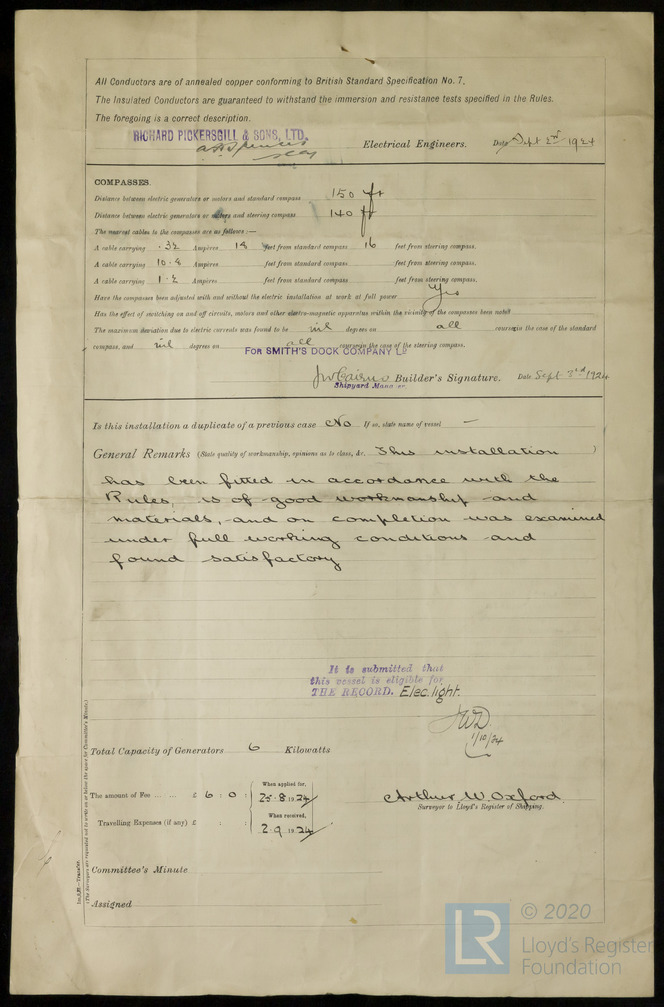 All Conductors are of annealed copper conforming to British Standard Specification No. 7.
The Insulated Conductors are guaranteed to withstand the immersion and resistance tests specified in the Rules.
The foregoing is a correct description.
RICHARD PICKERSGILL & SONS, LTD.
Electrical Engineers. Date Sept 2nd 1924
COMPASSES.
Distance between electric generators or motors and standard compass 150 ft
Distance between electric generators or motors and steering compass 140 ft
The nearest cables to the compasses are as follows :—
A cable carrying .32 Ampères 18 feet from standard compass 16 feet from steering compass.
A cable carrying 10.8 Ampères feet from standard compass feet from steering compass.
A cable carrying 1.2 Ampères feet from standard compass feet from steering compass.
Have the compasses been adjusted with and without the electric installation at work at full power Yes
Has the effect of switching on and off circuits, motors and other electro-magnetic apparatus within the vicinity of the compasses been noted
The maximum deviation due to electric currents was found to be nil degrees on all course in the case of the standard
compass, and nil degrees on all course in the case of the steering compass.
FOR SMITH'S DOCK COMPANY Ld
Builder's Signature. Date Sept 3rd 1924
Shipyard Manager.
Is this installation a duplicate of a previous case No If so, state name of vessel —
General Remarks (State quality of workmanship, opinions as to class, &c. This installation )
has been fitted in accordance with the
Rules, is of good workmanship and
materials, and on completion was examined
under full working conditions and
found satisfactory
It is submitted that
this vessel is eligible for
THE RECORD. Elec. light.
JWD.
1/10/24
Total Capacity of Generators 6 Kilowatts
The amount of Fee ... ... £ 6 : 0 : When applied for, 25.8.1924
Arthur W. Oxford
Surveyor to Lloyd's Register of Shipping.
Travelling Expenses (if any) £ : : When received, 2.9.1924
Committee's Minute
Assigned
(The Surveyors are requested not to write on or below the space for Committee's Minute.)
© 2020
LR Lloyd's Register
Foundation